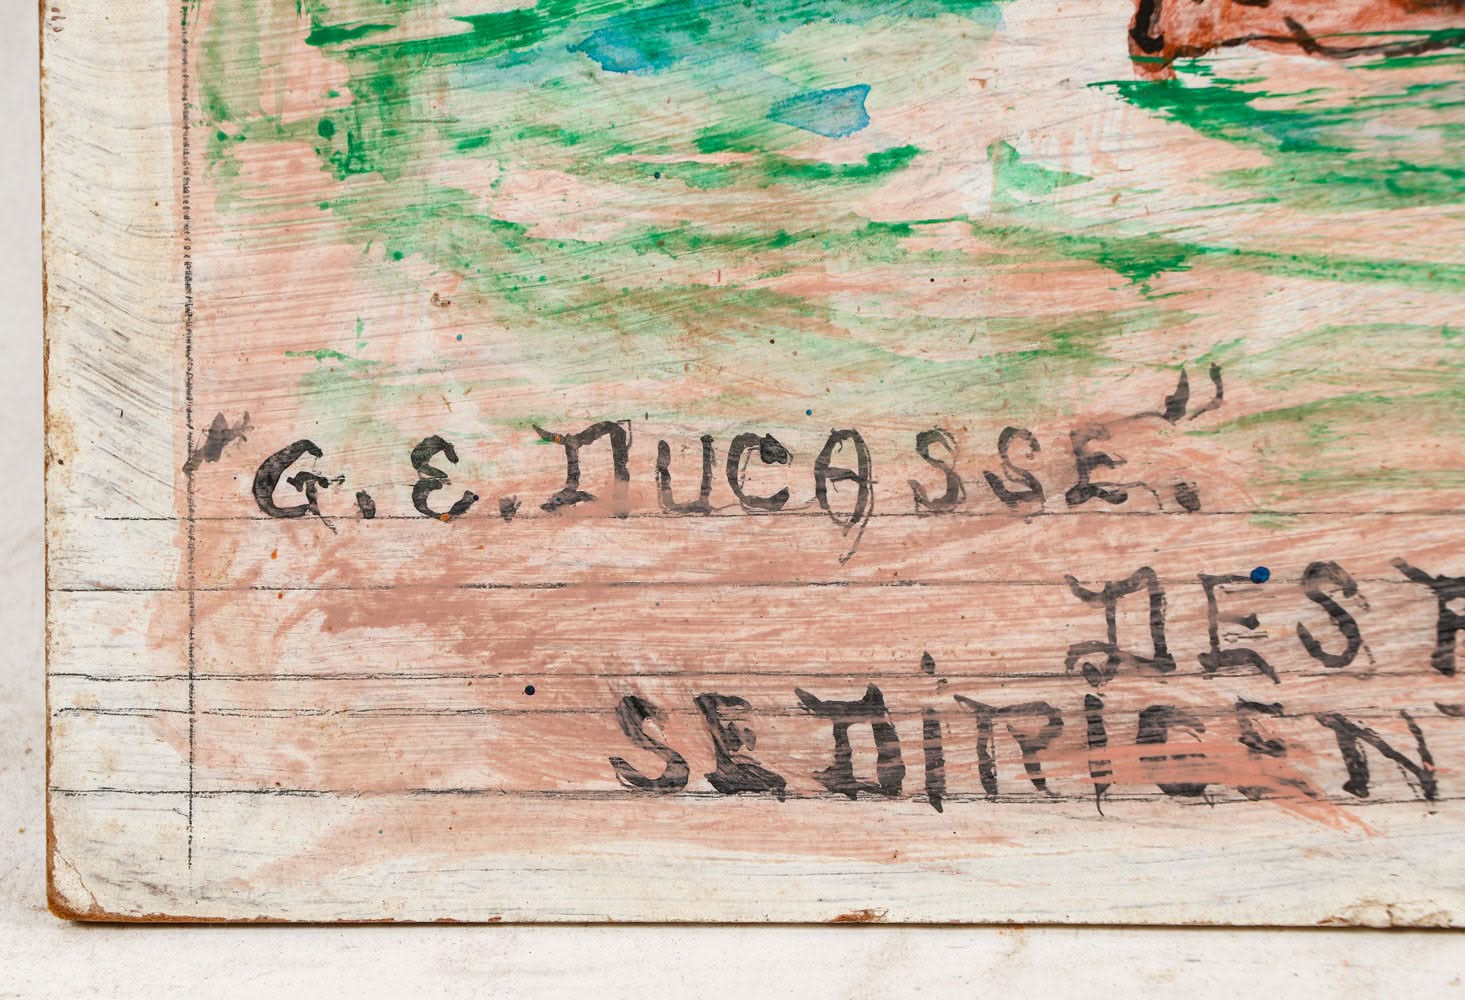 "G. E. DUCASSE".
DES
SE DiRiGEN